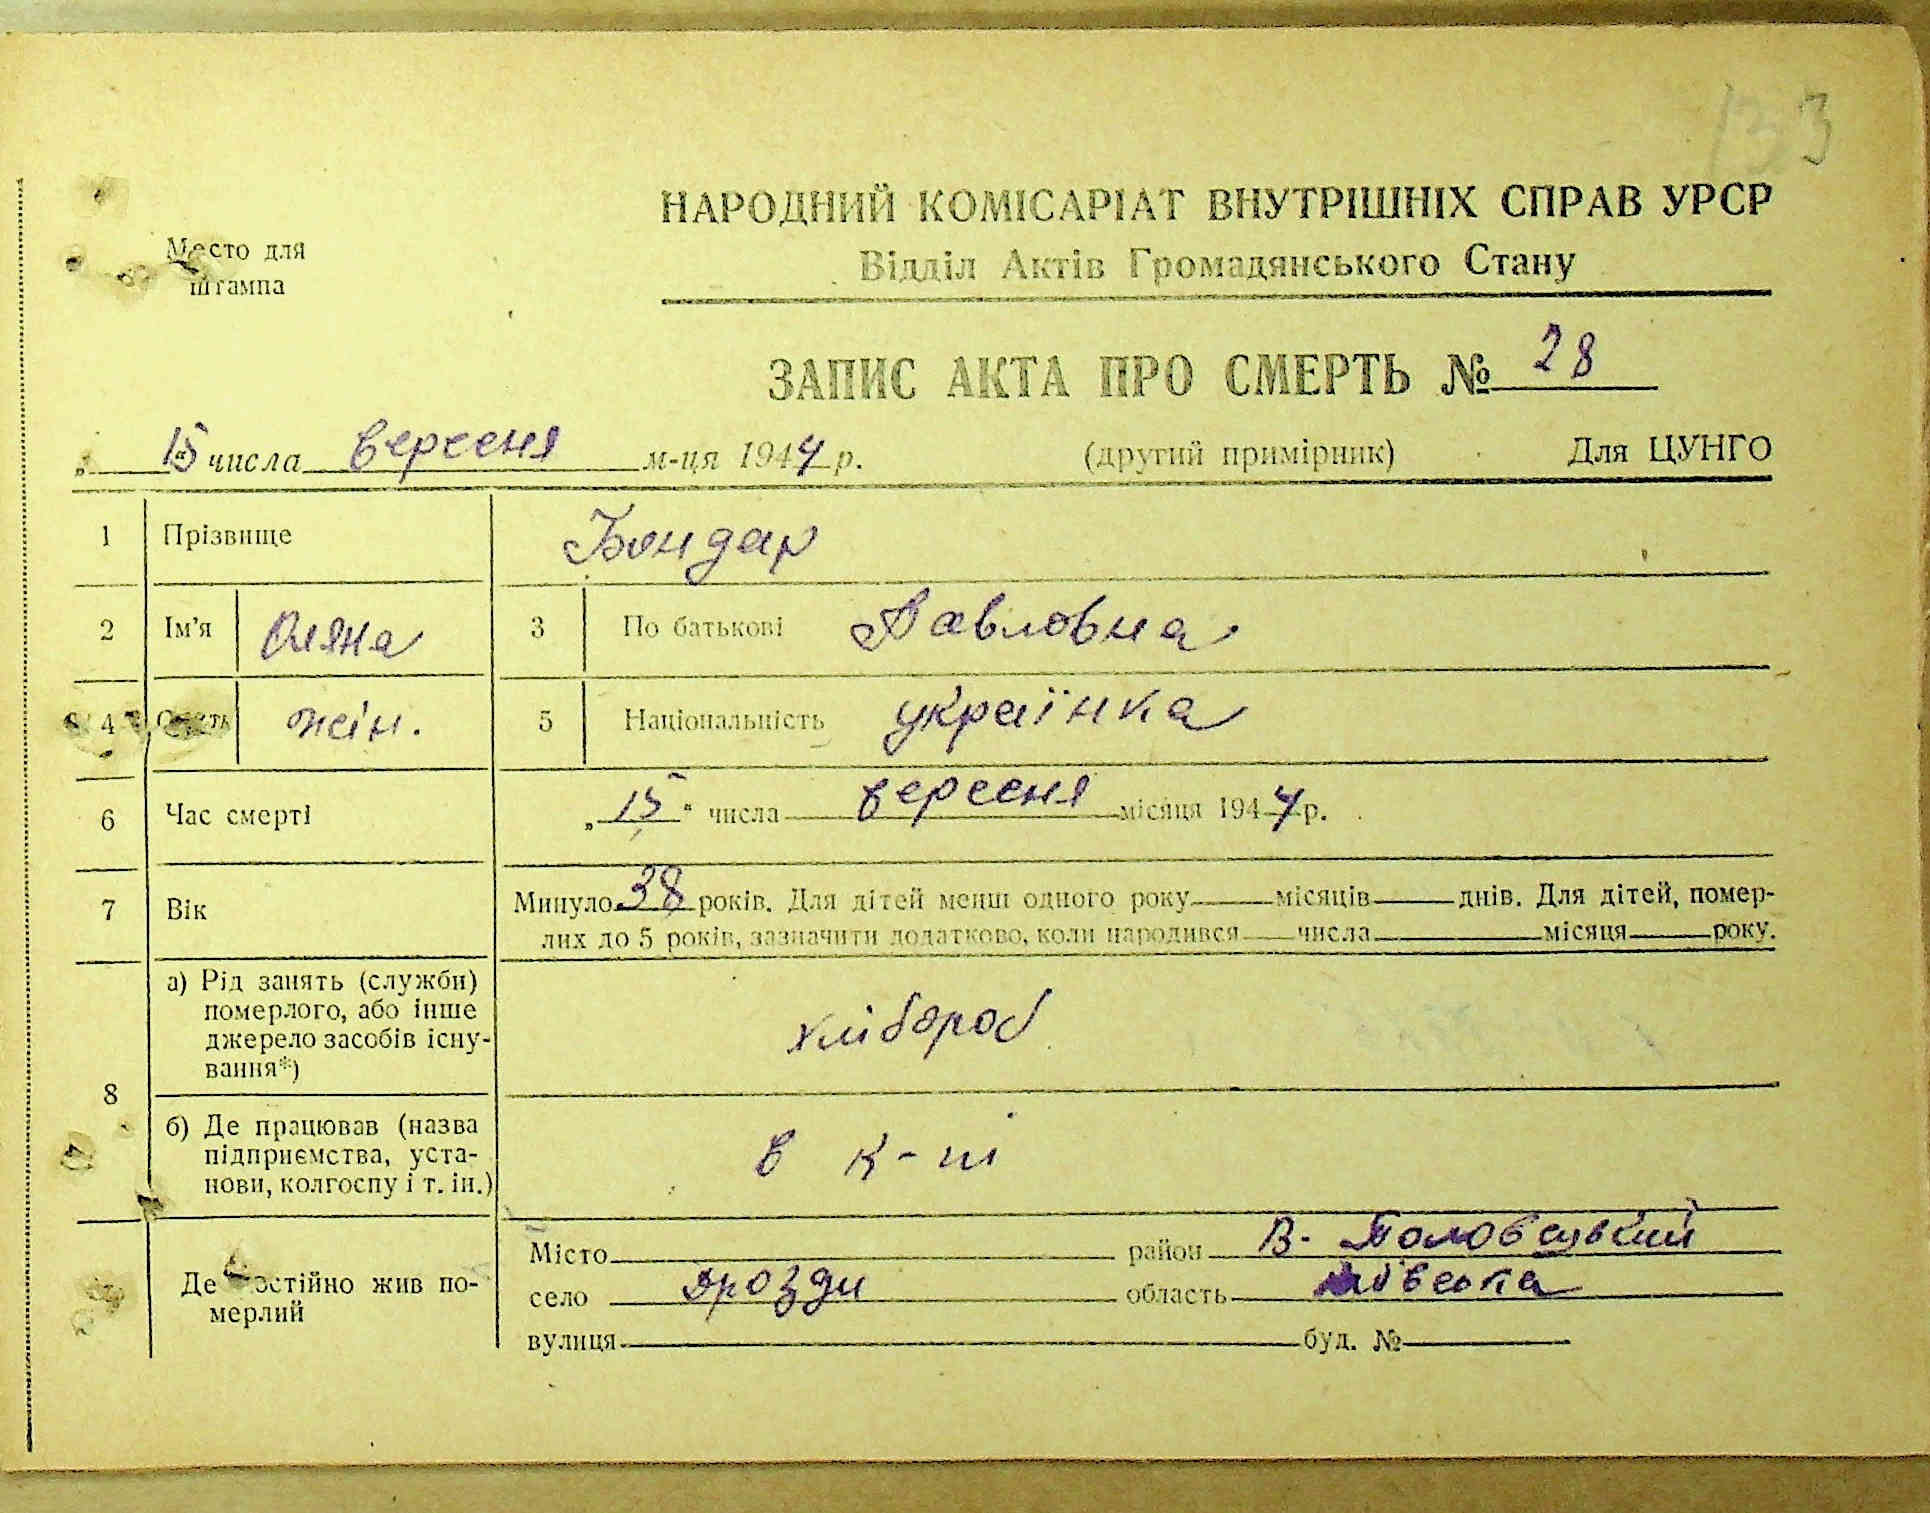 133
Место для
штампа
НАРОДНИЙ КОМІСАРІАТ ВНУТРІШНІХ СПРАВ УРСР
Відділ Актів Громадянського Стану
ЗАПИС АКТА ПРО СМЕРТЬ № 28
„ 15 “ числа вересня м-ця 1944 р. (другий примірник) Для ЦУНГО
1 Прізвище Бондар
2 Ім'я Оляна 3 По батькові Павловна
4 Стать жін. 5 Національність українка
6 Час смерті „ 15 “ числа вересня місяця 1944 р.
7 Вік Минуло 38 років. Для дітей менш одного року місяців днів. Для дітей, помер-
лих до 5 років, зазначити додатково, коли народився числа місяця року.
8 а) Рід занять (служби)
померлого, або інше
джерело засобів існу-
вання*)
хлібороб
б) Де працював (назва
підприємства, уста-
нови, колгоспу і т. ін.)
в к-пі
Де постійно жив по-
мерлий
Місто район В-Половецький
село Дрозди область
вулиця буд. №